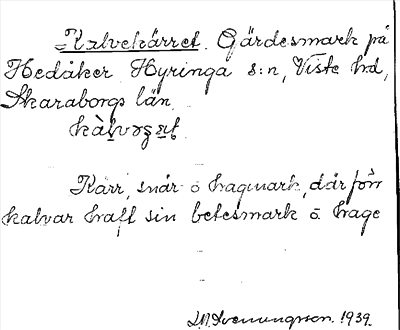 =Kalvekärret. Gärdesmark på
Hedåker Hyringa s:n, Viste hd,
Skaraborgs län.
Kärr, snår o hagmark, där förr
kalvar haft sin betesmark o hage
Svenungsson. 1939.